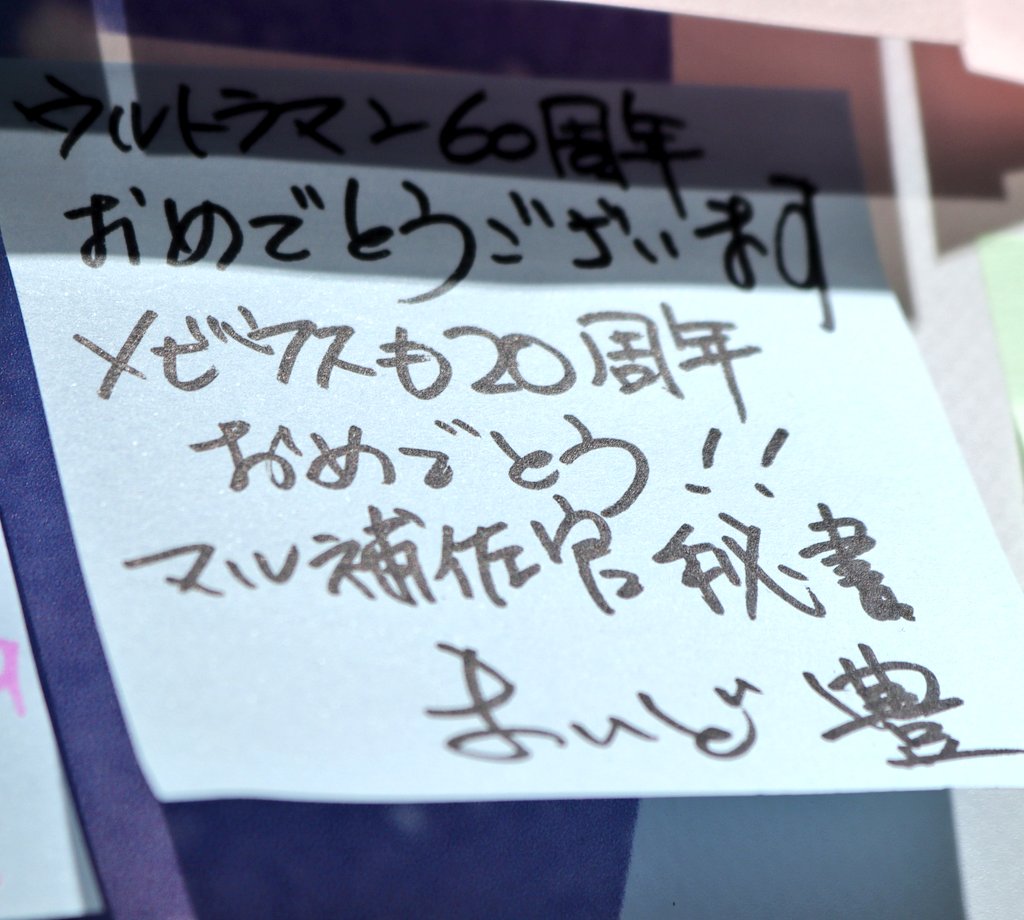 ウルトラマン60周年
おめでとうございます
メビウスも20周年
おめでとう!!
マル補佐官秘書
まいど 豊